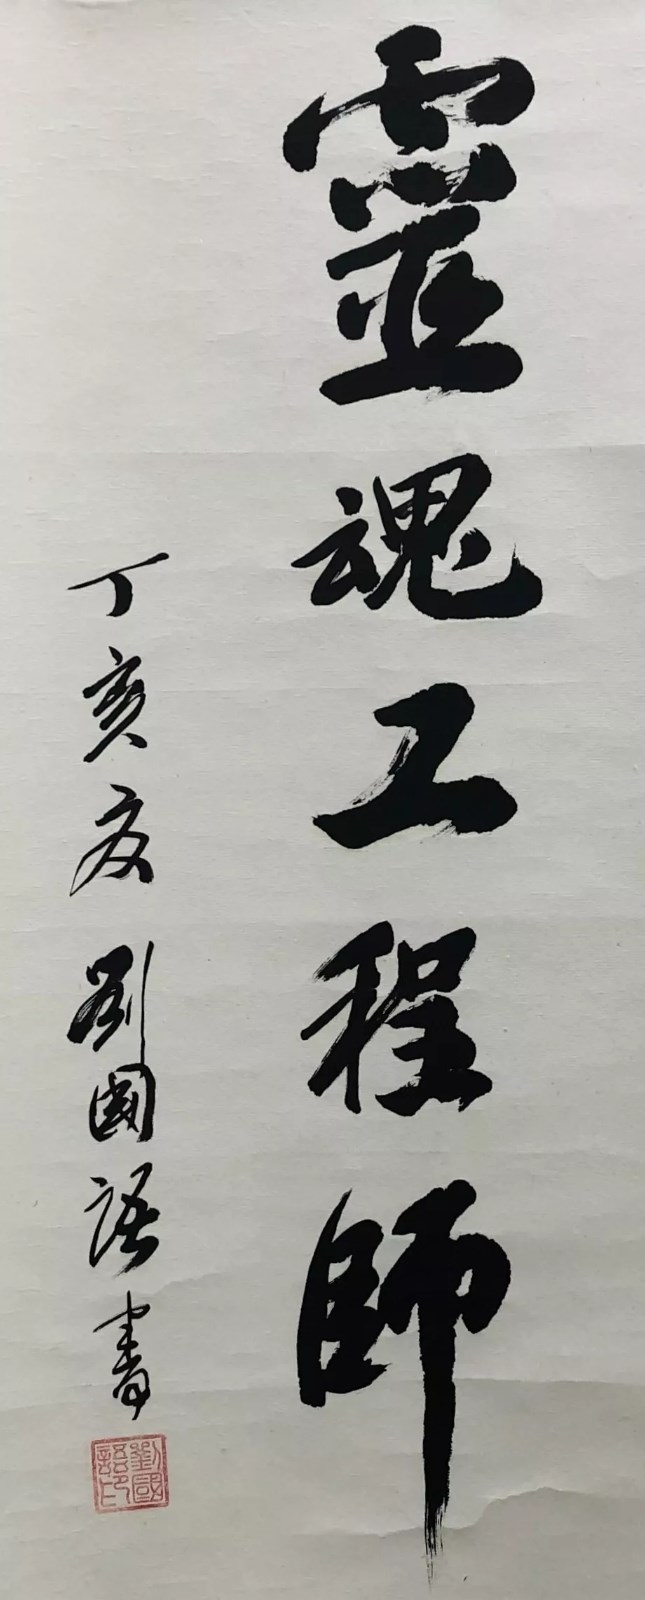 靈魂工程師
丁亥夏 劉國語書
劉國語印